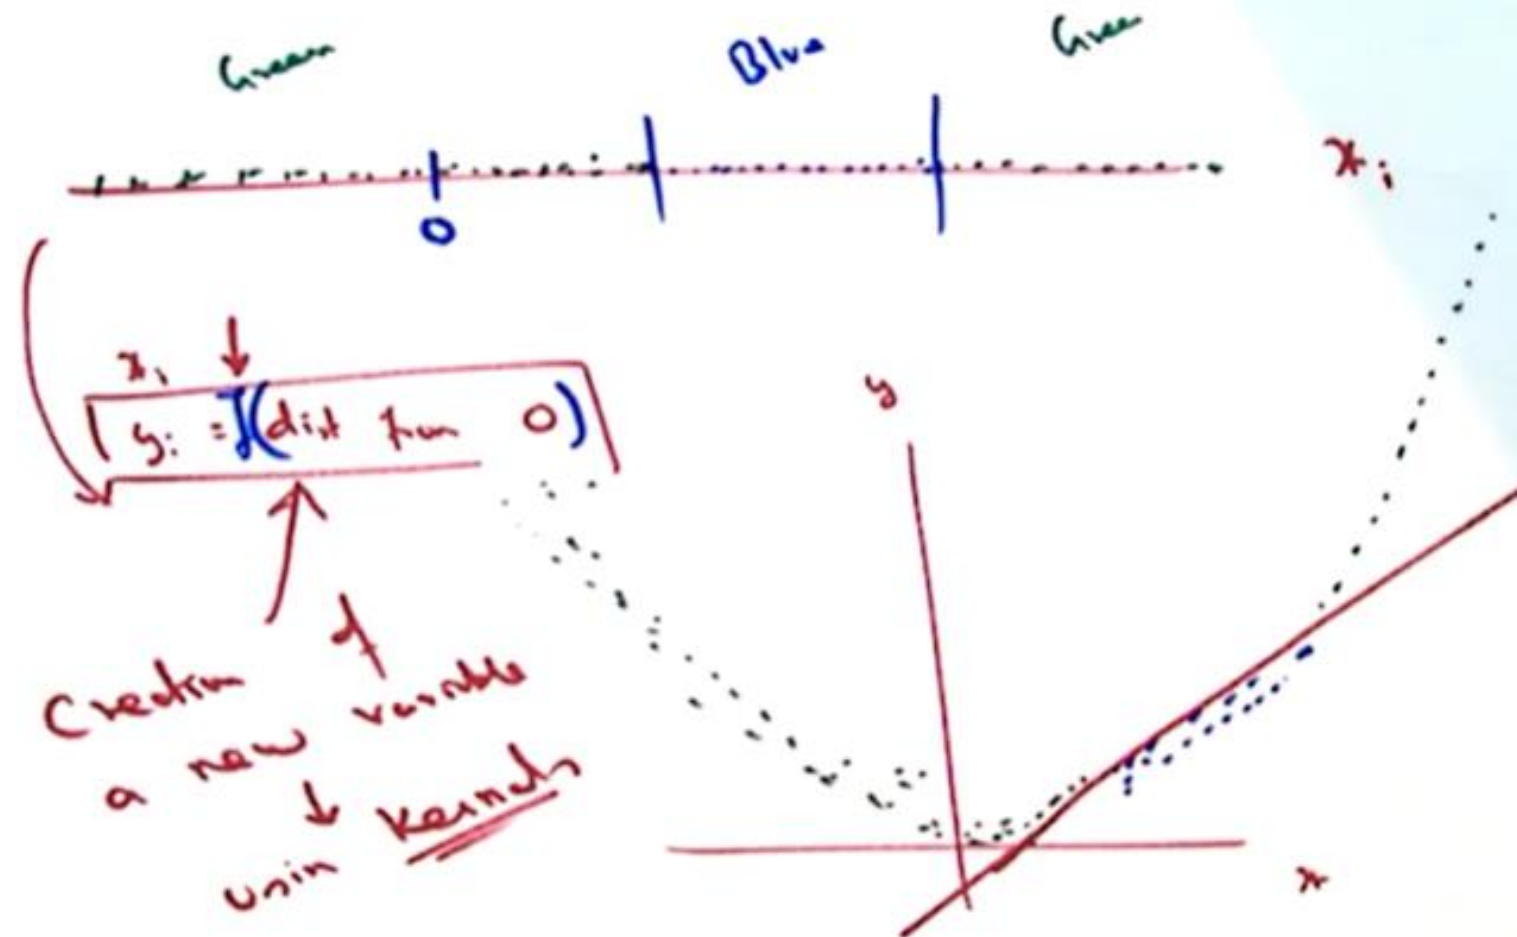 Green Blue Gree
0
xᵢ
xᵢ
yᵢ = f(dist from 0)
y
Creation of
a new variable
↓
usin Kernels
x